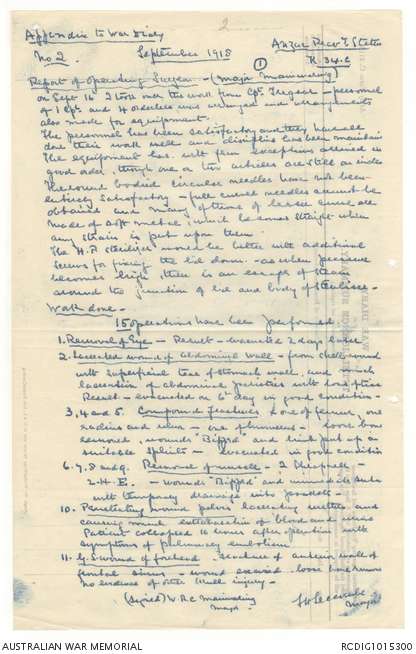 Appendix to War Diary
2
Anzac Recv'g Statn
No 2. September 1918
R. 34. c
(1)
Report of Operating Surgeon - (Major Mainwaring)
on Sept 16 I took over the work from Capt. - personnel
of 1 Cpl and 4 orderlies was arranged and arrangements
also made for equipment.
The personnel has been satisfactory and they have all
done their work well and discipline has been maintained
The equipment has with few exceptions arrived in
good order though one or two articles are still on indent
The round bodied circular needles have not been
entirely satisfactory - full curved needles cannot be
obtained and many of those of lesser curve are
made of soft metal, which becomes straight when
any strain is put upon them.
The H.P. steriliser would be better with additional
screws for fixing the lid down - as when pressure
becomes high there is an escape of steam
around the junction of lid and body of steriliser -
Work done -
15 operations have been performed.
1. Removal of Eye - Result - evacuated 2 days later
2. Lacerated wound of abdominal wall - from shell wound
with superficial tear of stomach wall, and much
laceration of abdominal parieties with loss of tissue
Result - evacuated on 6th day in good condition -
3, 4 and 5. Compound fractures 2 one of femur, one
radius and ulna - one of humerus - loose bone
removed, wounds "Bipped" and limb put up in
suitable splints - evacuated in good condition
6. 7. 8 and 9. Removal of missile - 2 Shrapnel -
2. H. E. - wounds "Bipped" and immediate suture
with temporary drainage where possible -
10. Penetrating wound pelvis lacerating urethra and
causing much extravasation of blood and urine
Patient collapsed 10 hours after operation with
symptoms of Pulmonary embolism
11. G.S. wound of forehead - fracture of anterior wall of
frontal sinus - wound excised - loose bone removed
no evidence of other skull injury -
(Signed) W. R. C. Mainwaring
Major
Major
AUSTRALIAN WAR MEMORIAL
RCDIG1015300